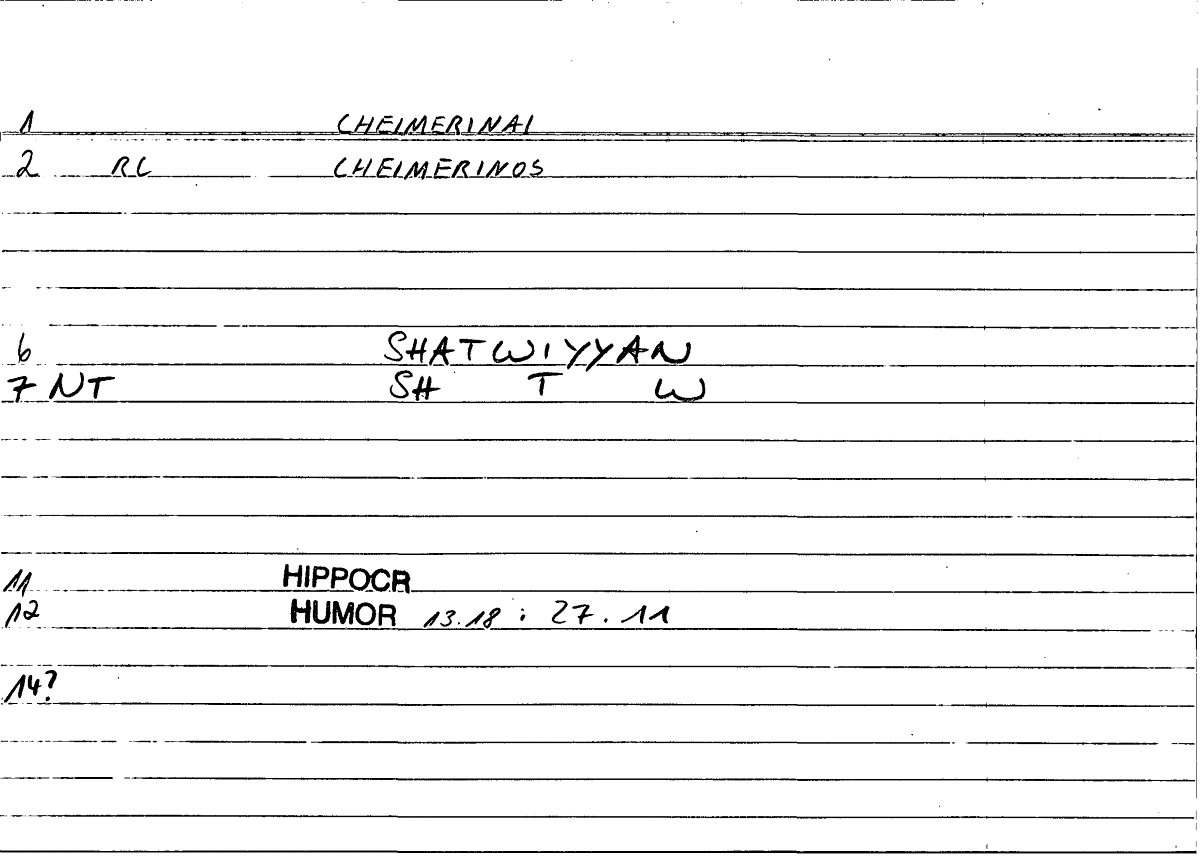 1 CHEIMERINAI
2 RC CHEIMERINOS
6 SHATWIYYAN
7 NT SH T W
11 HIPPOCR
12 HUMOR 13.18 : 27.11
14?